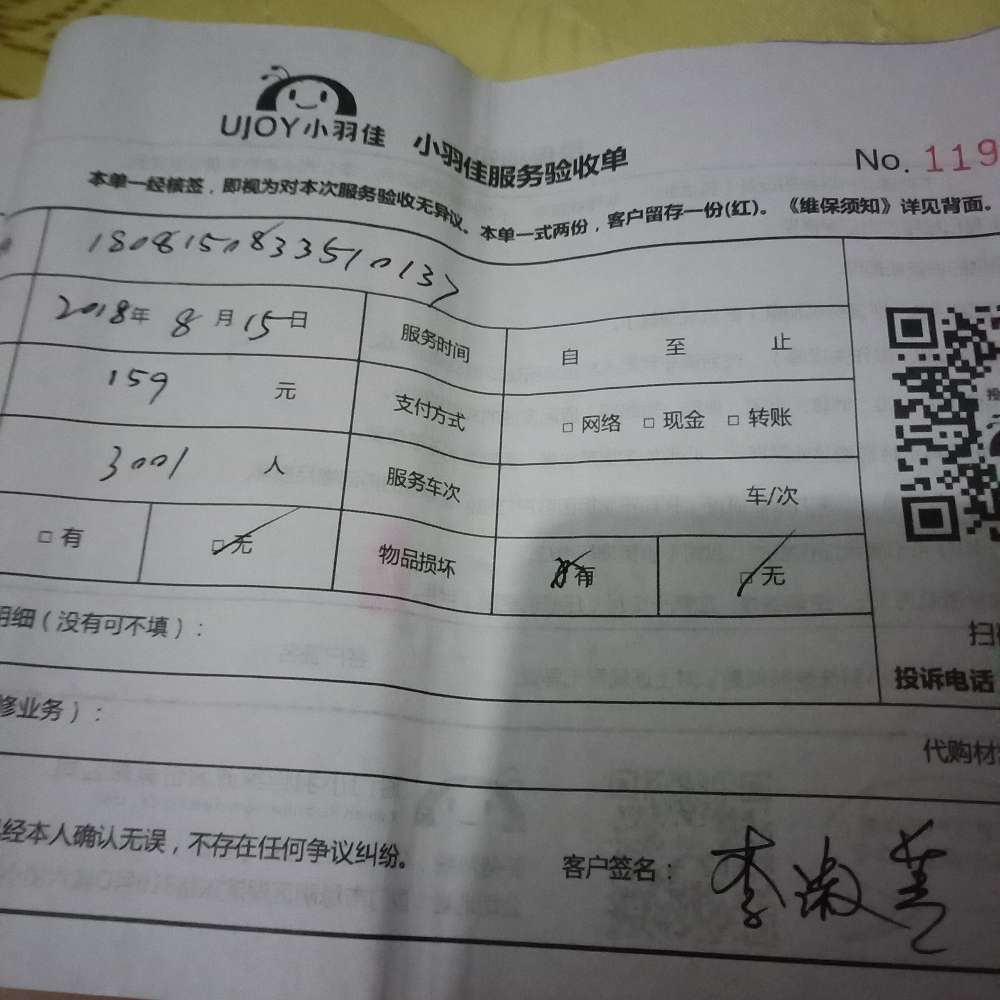 UJOY小羽佳 小羽佳服务验收单
No. 119
本单一经核签，即视为对本次服务验收无异议。本单一式两份，客户留存一份(红)。《维保须知》详见背面。
1808150833510137
2018年 8月15日 服务时间 自 至 止
159 元 支付方式 □ 网络 □ 现金 □ 转账
3001 人 服务车次 车/次
□ 有 □ 无 物品损坏 □ 有 □ 无
明细（没有可不填）：
投诉电话
修业务）：
代购材
经本人确认无误，不存在任何争议纠纷。 客户签名：